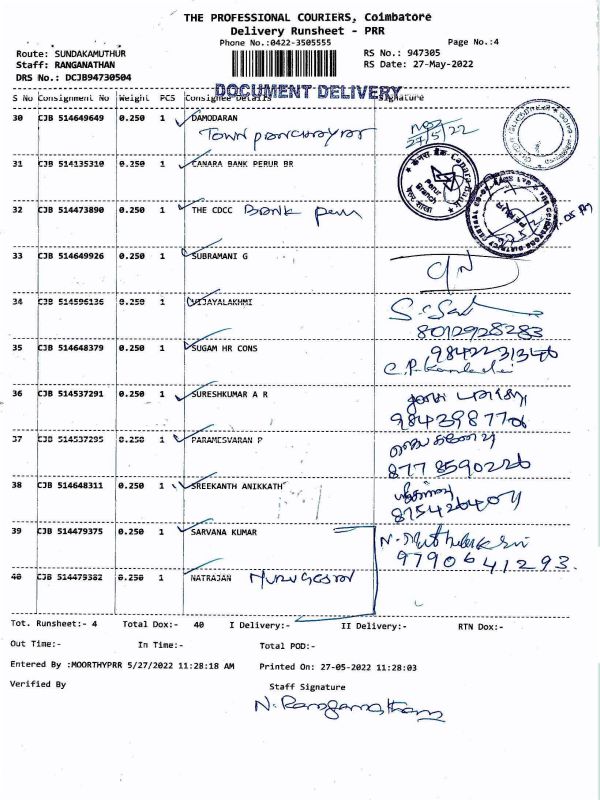 THE PROFESSIONAL COURIERS, Coimbatore
Delivery Runsheet - PRR
Phone No.:0422-3505555 Page No.:4
Route: SUNDAKAMUTHUR RS No.: 947305
Staff: RANGANATHAN RS Date: 27-May-2022
DRS No.: DCJB94730504
DOCUMENT DELIVERY
S No Consignment No Weight PCS Consignee Details Signature
30 CJB 514649649 0.250 1 DAMODARAN
Town panchayat 27/5/22
31 CJB 514135310 0.250 1 CANARA BANK PERUR BR
Perur Branch
32 CJB 514473890 0.250 1 THE CDCC Bank
33 CJB 514649926 0.250 1 SUBRAMANI G
34 CJB 514596136 0.250 1 VIJAYALAKHMI
8012928283
35 CJB 514648379 0.250 1 SUGAM HR CONS 9842231346
36 CJB 514537291 0.250 1 SURESHKUMAR A R
37 CJB 514537295 0.250 1 PARAMESVARAN P
8778590226
38 CJB 514648311 0.250 1 SREEKANTH ANIKKATH
39 CJB 514479375 0.250 1 SARVANA KUMAR
9790641293.
40 CJB 514479382 0.250 1 NATRAJAN Murugesan
Tot. Runsheet:- 4 Total Dox:- 40 I Delivery:- II Delivery:- RTN Dox:-
Out Time:- In Time:- Total POD:-
Entered By :MOORTHYPRR 5/27/2022 11:28:18 AM Printed On: 27-05-2022 11:28:03
Verified By Staff Signature
N. Ranganatham